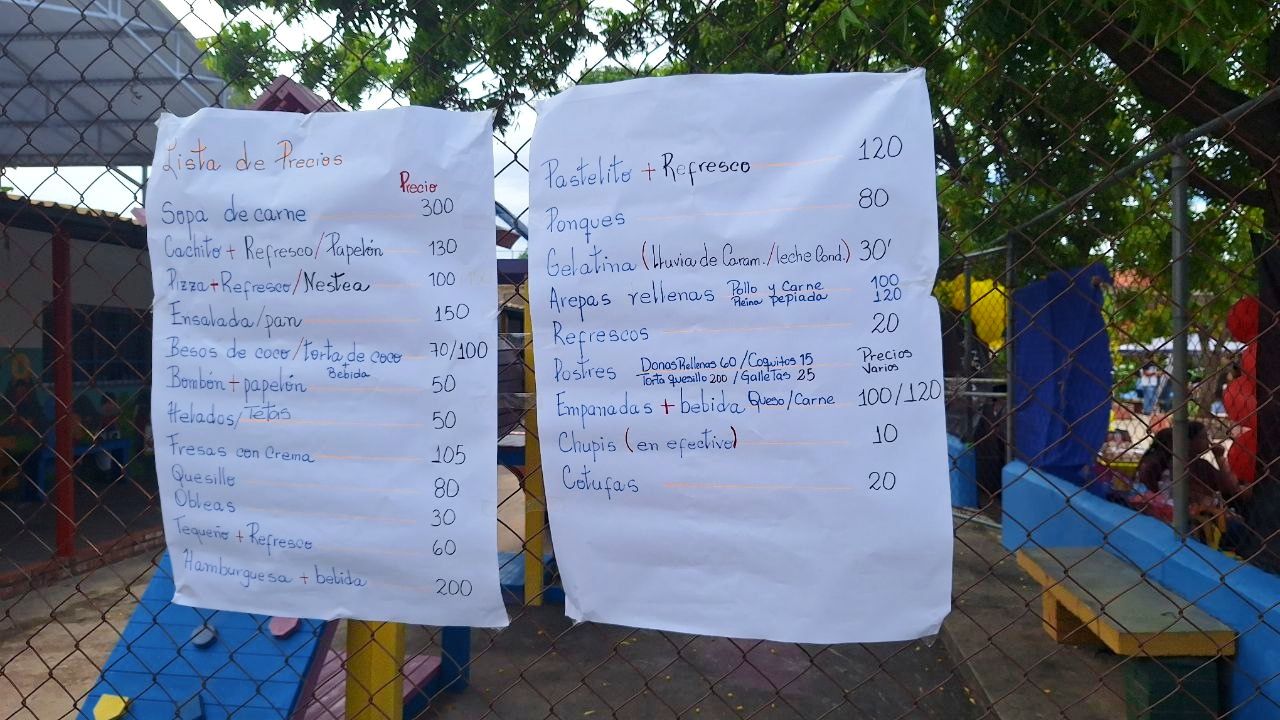 Lista de Precios
Precio
Sopa de carne 300
Cachito + Refresco/Papelón 130
Pizza + Refresco/Nestea 100
Ensalada/pan 150
Besos de coco/torta de coco 70/100
+ Bebida
Bombón + papelón 50
Helados/Tetas 50
Fresas con Crema 105
Quesillo 80
Obleas 30
Tequeño + Refresco 60
Hamburguesa + bebida 200
Pastelito + Refresco 120
Ponques 80
Gelatina (lluvia de Caram./leche Cond.) 30'
Arepas rellenas Pollo y Carne 100
Pleina pepiada 120
Refrescos 20
Postres Donas Rellenas 60/Coquitos 15 Precios
Torta quesillo 200/Galletas 25 Varios
Empanadas + bebida Queso/Carne 100/120
Chupis (en efectivo) 10
Cotufas 20